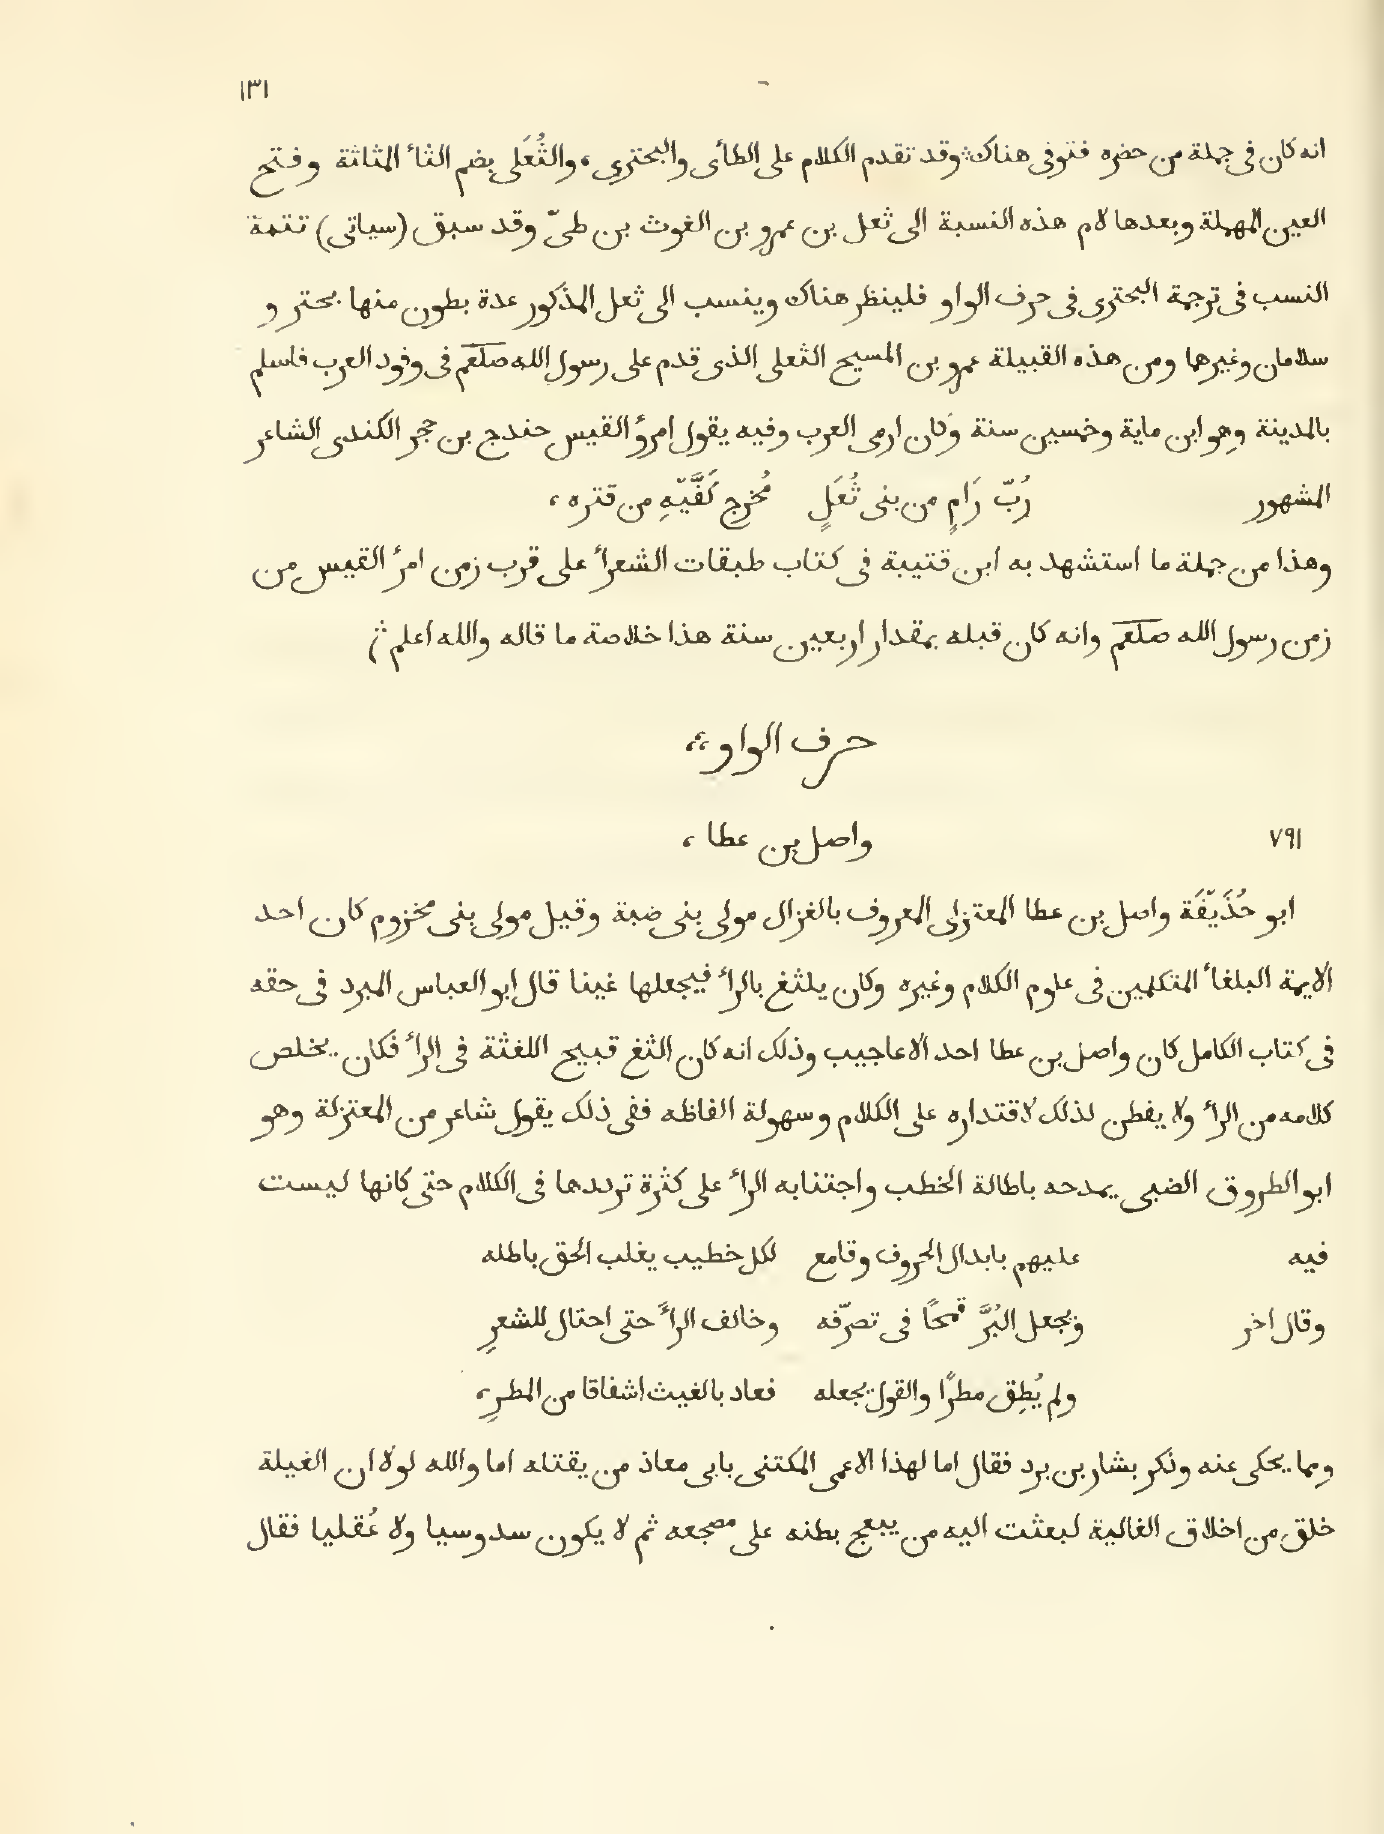 ١٣١
انه كان فى جملة من حضره فتوفى هناك وقد تقدم الكلام على الطاأى والبحترى، والثُعَلى بضم الثاأ المثاثة وفتح
العين المهملة وبعدها لام هذه النسبة الى ثعل بن عمرو بن الغوث بن طىّ وقد سبق (سياتى) تتمة
النسب فى ترجمة البحترى فى حرف الواو فلينظر هناك وينسب الى ثعل المذكور عدة بطون منها بحتر و
سلامان وغيرها ومن هذه القبيلة عمرو بن المسيح الثعلى الذى قدم على رسول الله صلعم فى وفود العرب فاسلم
بالمدينة وهو ابن ماية وخمسين سنة وكان ارمى العرب وفيه يقول امرؤ القيس حندج بن حجر الكندى الشاعر
المشهور رُبّ رَامٍ من بنى ثُعَلٍ مُخرِج كَفَّيّهِ من قتره،
وهذا من جملة ما استشهد به ابن قتيبة فى كتاب طبقات الشعرأ على قرب زمن امرأ القيس من
زمن رسول الله صلعم وانه كان قبله بمقدار اربعين سنة هذا خلاصة ما قاله والله اعلم
حرف الواو
٧٩١ واصل بن عطا،
ابو حُذَيّفَة واصل بن عطا المعتزلى المعروف بالغزال مولى بنى ضبة وقيل مولى بنى مخزوم كان احد
الايمة البلغاأ المتكلمين فى علوم الكلام وغيره وكان يلثغ بالرأ فيجعلها غينا قال ابو العباس المبرد فى حقه
فى كتاب الكامل كان واصل بن عطا احد الاعاجيب وذلك انه كان الثغ قبيح اللغثة فى الرأ فكان يخلص
كلامه من الرأ ولا يفطن لذلك لاقتداره على الكلام وسهولة الفاظه ففى ذلك يقول شاعر من المعتزلة وهو
ابو الطروق الضبى يمدحه باطالة الخطب واجتنابه الرأ على كثرة ترددها فى الكلام حتى كانها ليست
فيه عليهم بابدال الحروف وقامع لكل خطيب يغلب الحق باطله
وقال اخر ويجعل البُرَّ قمحًا فى تصرّفه وخالف الرأَ حتى احتال للشعرِ
ولم يُطِق مطرًا والقول يجعله فعاد بالغيث اشفاقا من المطرِ،
ومما يحكى عنه وذكر بشار بن برد فقال اما لهذا الاعمى المكتنى بابى معاذ من يقتله اما والله لولا ان الغيلة
خلق من اخلاق الغالية لبعثت اليه من يبعج بطنه على مضجعه ثم لا يكون سدوسيا ولا عُقليا فقال